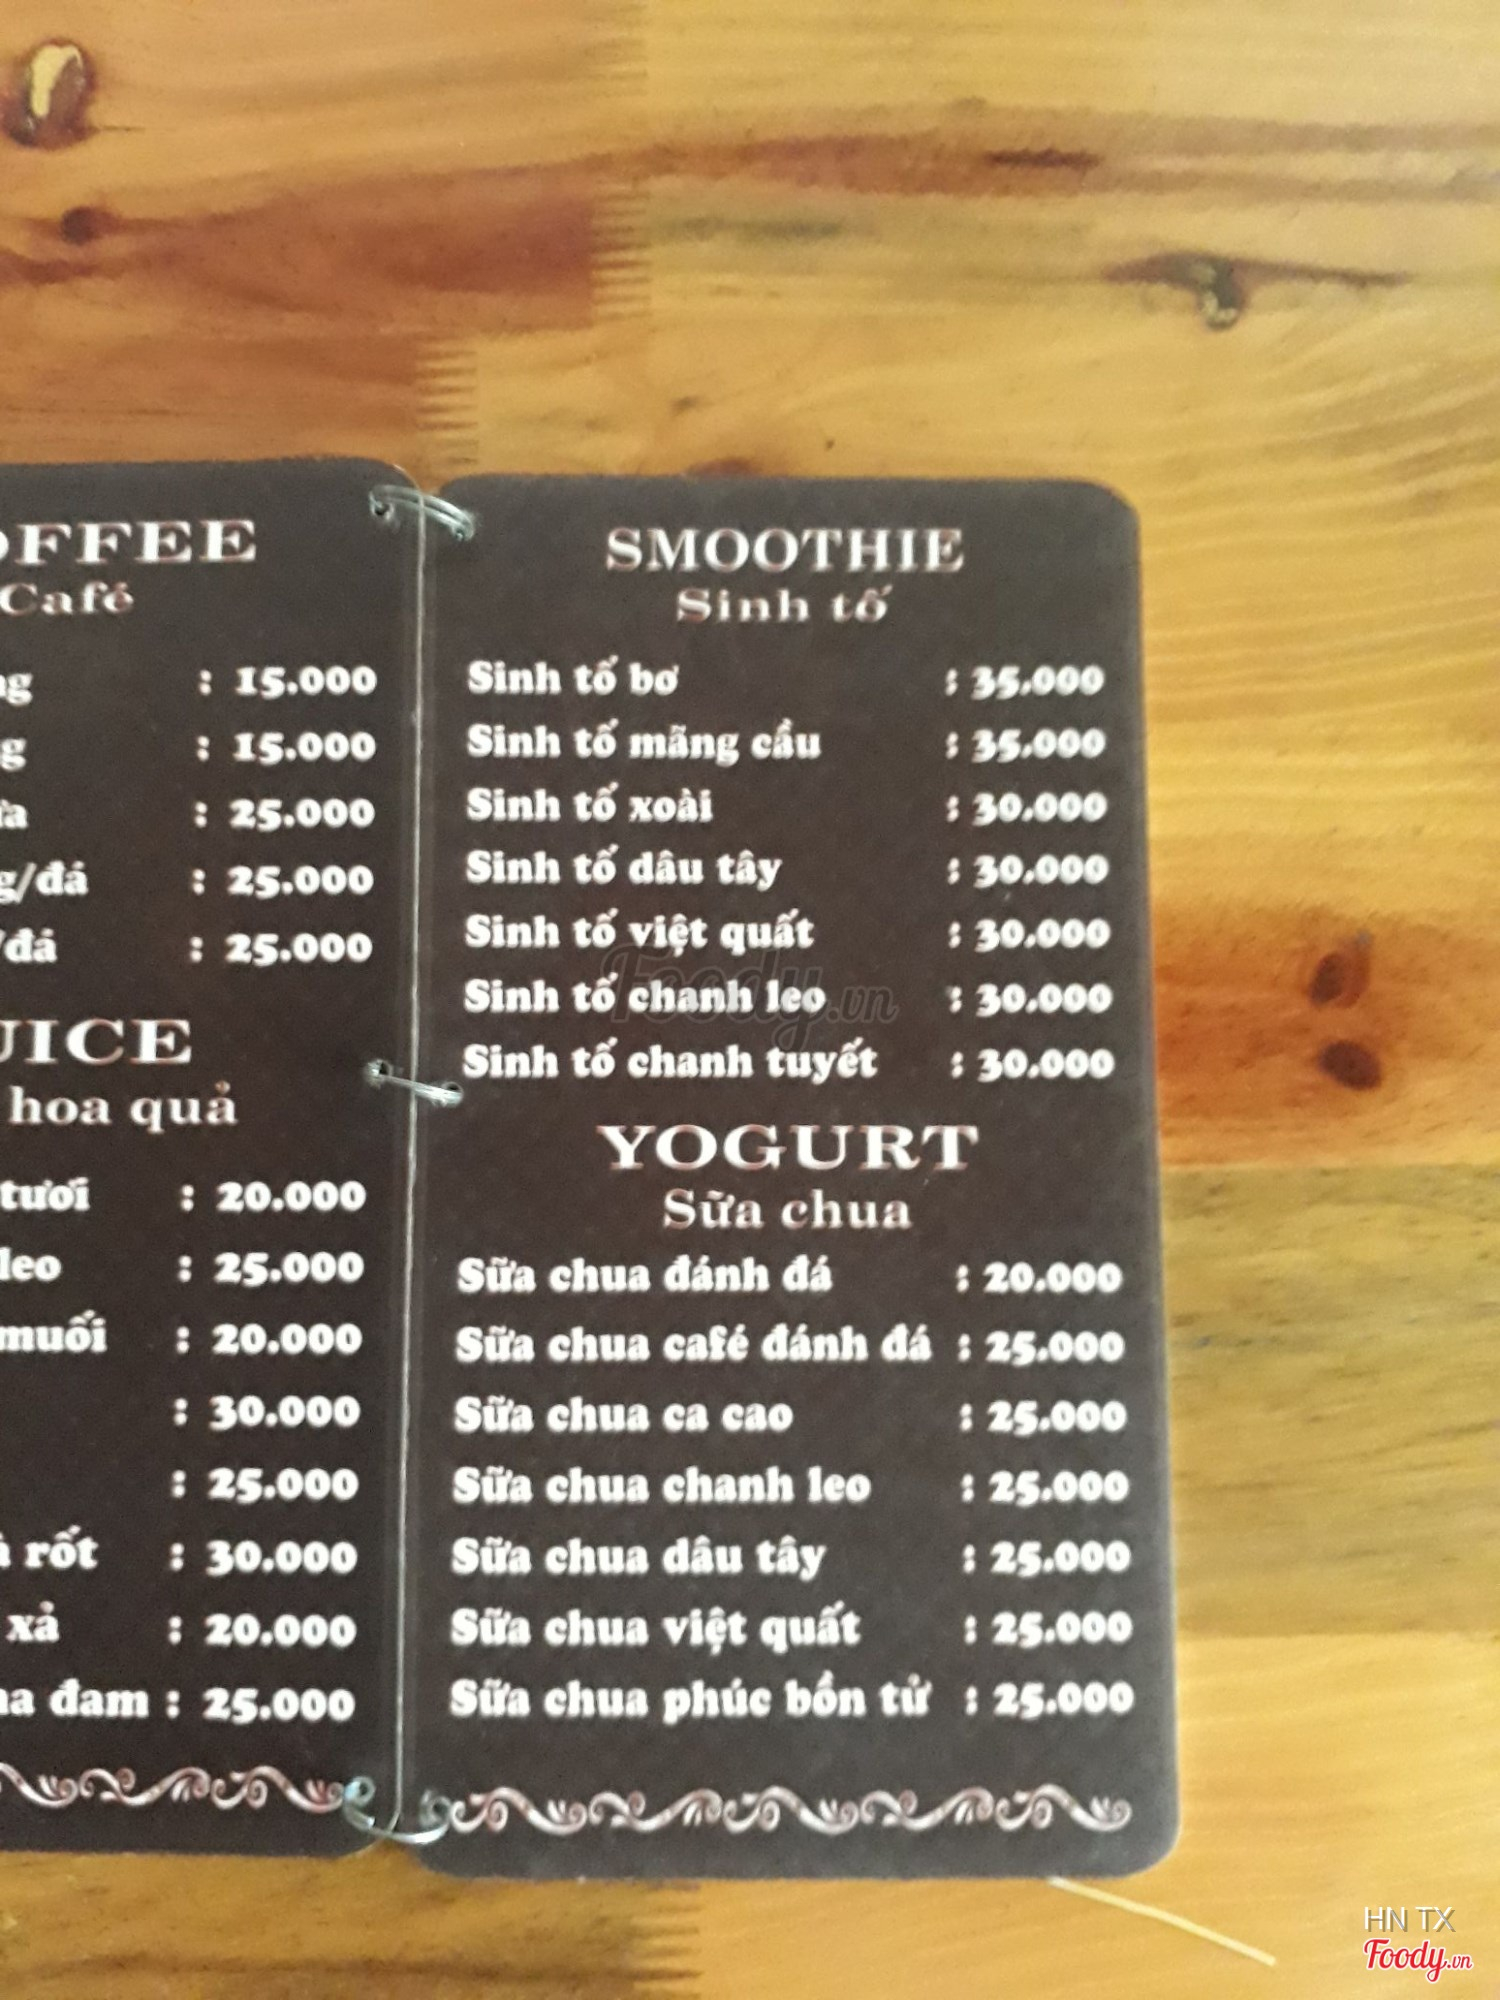 OFFEE
Café
ng : 15.000
g : 15.000
ừa : 25.000
g/đá : 25.000
/đá : 25.000
UICE
hoa quả
tươi : 20.000
leo : 25.000
muối : 20.000
: 30.000
: 25.000
à rốt : 30.000
xả : 20.000
ha đam : 25.000
SMOOTHIE
Sinh tố
Sinh tố bơ : 35.000
Sinh tố mãng cầu : 35.000
Sinh tố xoài : 30.000
Sinh tố dâu tây : 30.000
Sinh tố việt quất : 30.000
Sinh tố chanh leo : 30.000
Sinh tố chanh tuyết : 30.000
YOGURT
Sữa chua
Sữa chua đánh đá : 20.000
Sữa chua café đánh đá : 25.000
Sữa chua ca cao : 25.000
Sữa chua chanh leo : 25.000
Sữa chua dâu tây : 25.000
Sữa chua việt quất : 25.000
Sữa chua phúc bồn tử : 25.000
Foody.vn
HN TX
Foody.vn